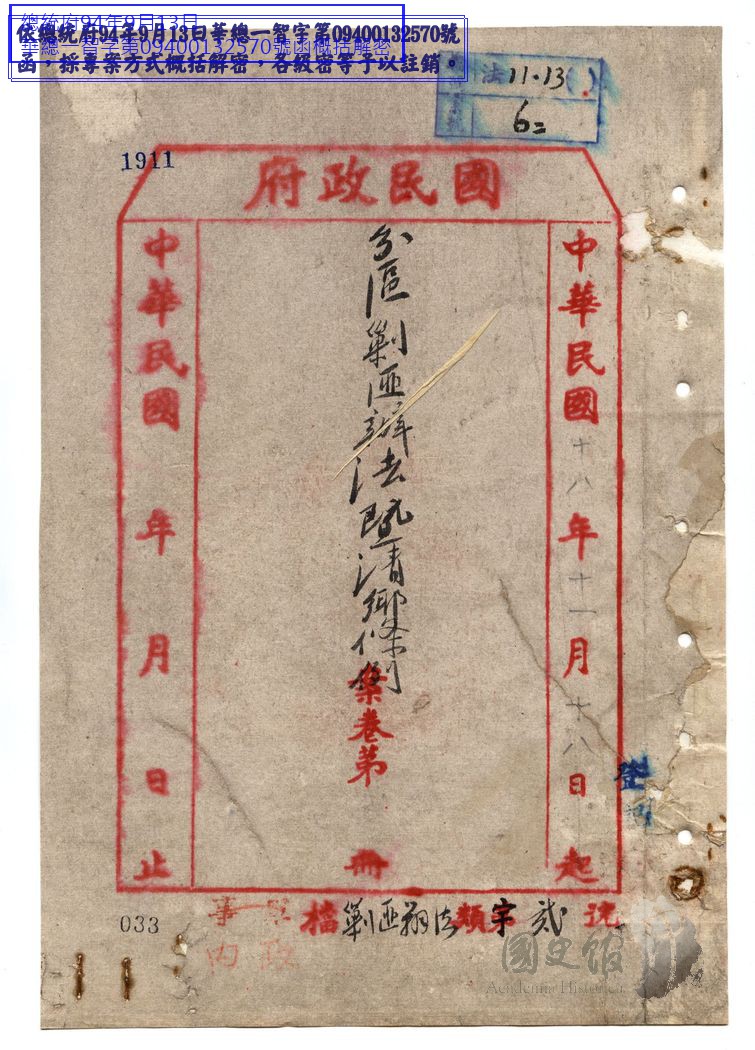 總統府94年9月13日
華總一智字第09400132570號函概括解密
依總統府94年9月13日華總一智字第09400132570號
函，採專案方式概括解密，各級密等予以註銷。
法 11.13( )
62
1911
國民政府
中華民國十八年十一月十八日起
分區剿匪辦法暨清鄉條例
案卷第 冊
中華民國 年 月 日止
登
033
軍事
內政
檔
剿匪
類
字
貳
號
國史館
Academia Historica